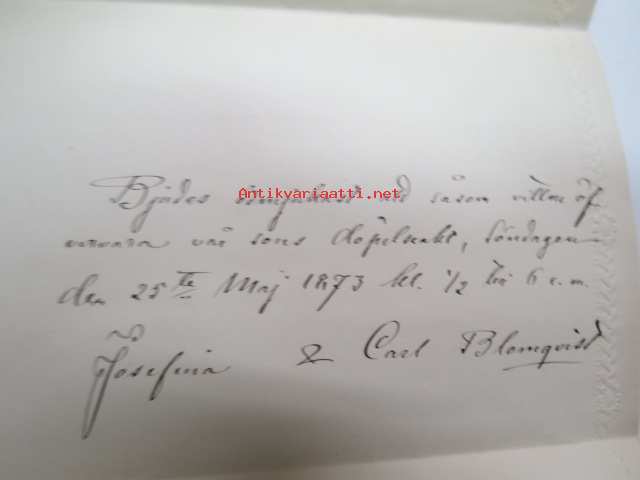 Bjudes ömjukast att såsom vittne öf
vervara vår sons döpelseakt, söndagen
den 25te Maj 1873 kl. 1/2 till 6 e.m.
Josefina & Carl Blomqvist
Antikvariaatti.net